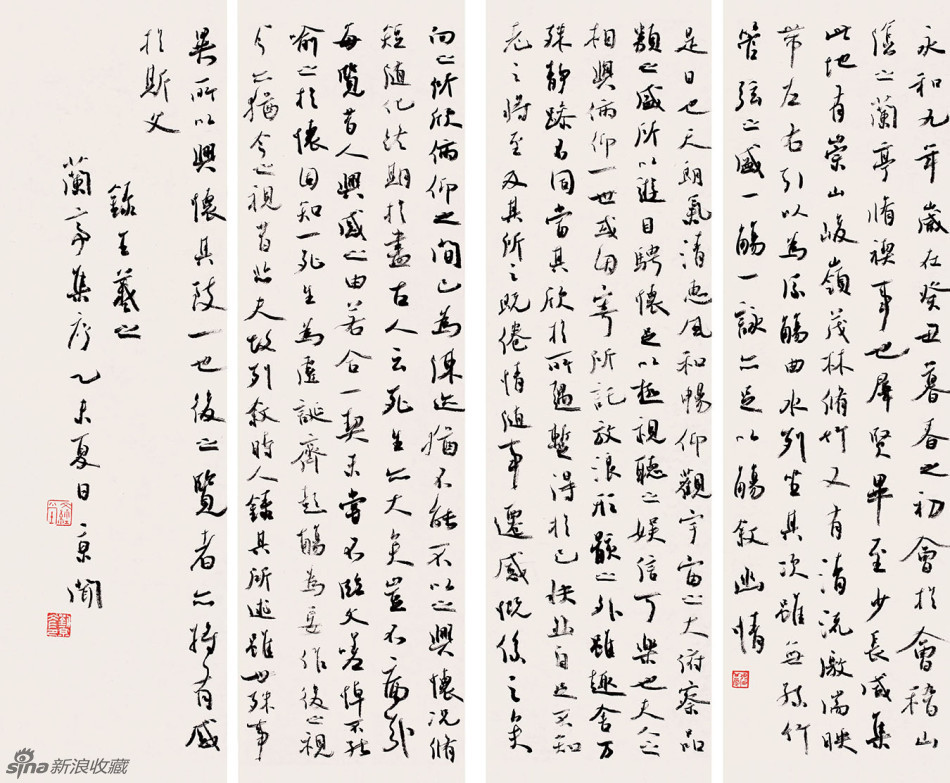 永和九年歲在癸丑暮春之初會於會稽山
陰之蘭亭脩禊事也羣賢畢至少長咸集
此地有崇山峻嶺茂林脩竹又有清流激湍映
帶左右引以為流觴曲水列坐其次雖無絲竹
管弦之盛一觴一詠亦足以暢敘幽情
是日也天朗氣清惠風和暢仰觀宇宙之大俯察品
類之盛所以遊目騁懷足以極視聽之娛信可樂也夫人之
相與俯仰一世或因寄所託放浪形骸之外雖趣舍萬
殊靜躁不同當其欣於所遇暫得於己快然自足不知
老之將至及其所之既倦情隨事遷感慨係之矣
向之所欣俯仰之間已為陳迹猶不能不以之興懷況脩
短隨化終期於盡古人云死生亦大矣豈不痛哉
每覽昔人興感之由若合一契未嘗不臨文嗟悼不能
喻之於懷固知一死生為虛誕齊彭殤為妄作後之視
今亦猶今之視昔悲夫故列敘時人錄其所述雖世殊事
異所以興懷其致一也後之覽者亦將有感
於斯文
錄王羲之
蘭亭集序乙未夏日
sina新浪收藏